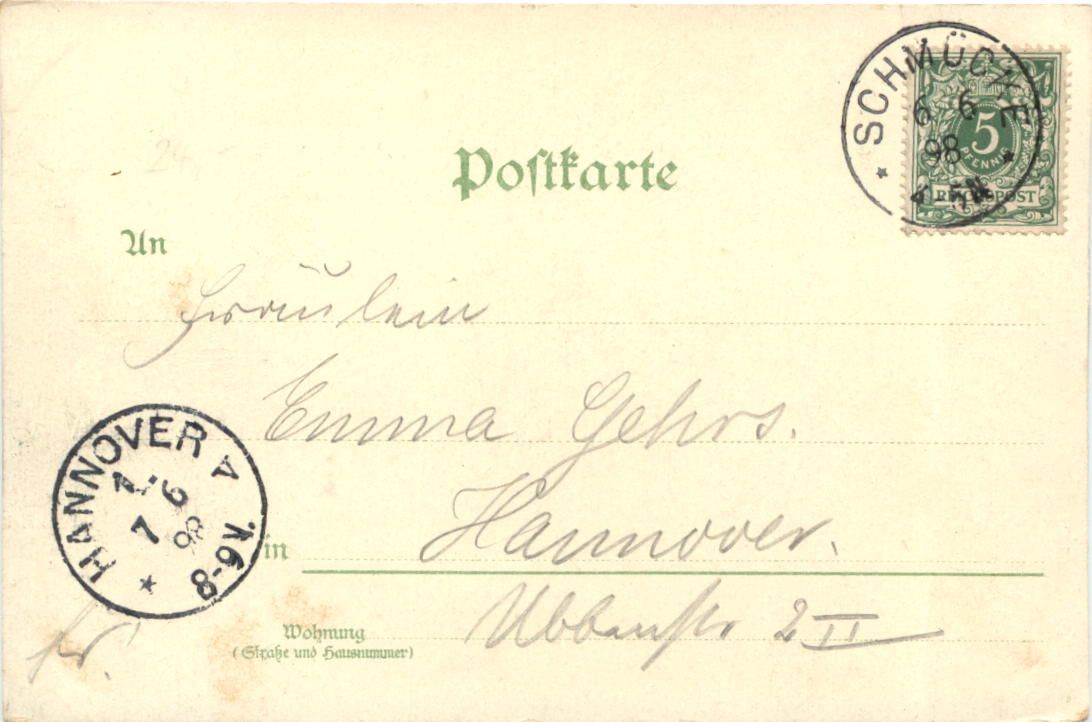 SCHMÜCKE
6 6
98
4-5N
5
PFENNIG
REICHSPOST
24
Postkarte
An
Fräulein
Emma Gehrs.
HANNOVER
7 6
98
8-9V.
in Hannover.
Wohnung
(Straße und Hausnummer)
Ubbenstr 2 II
fr.